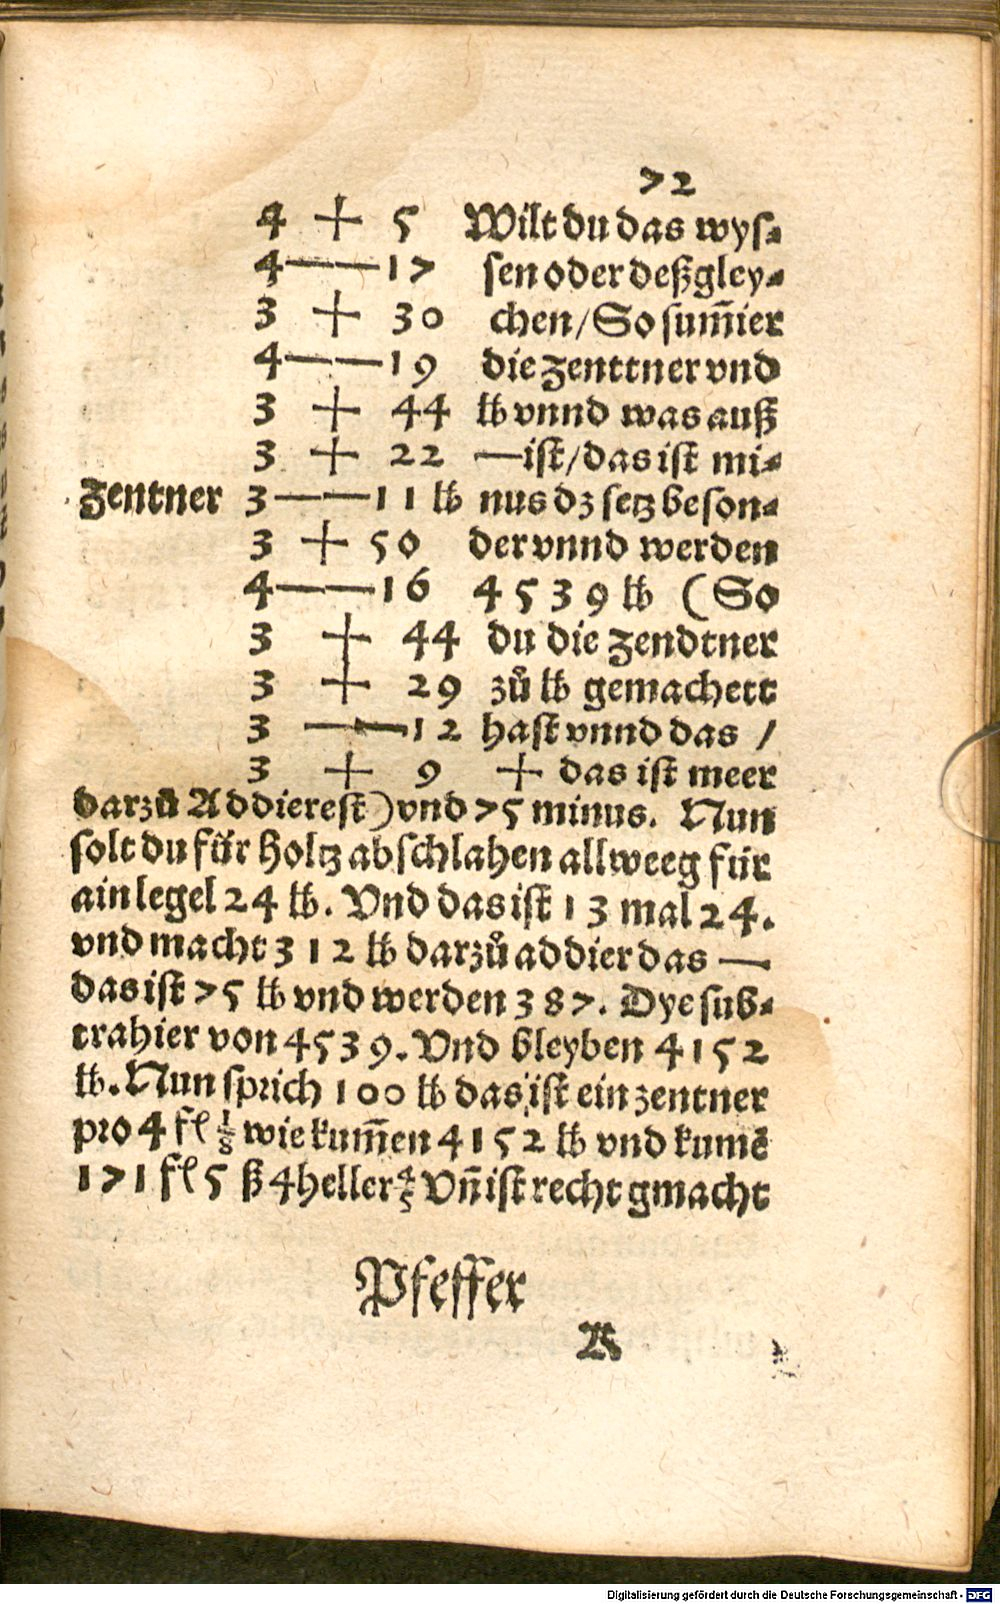 72
4 + 5 Wilt du das wys⸗
4 — 17 sen oder deßgley⸗
3 + 30 chen/So sum̄ier
4 — 19 die Zenttner vnd
3 + 44 lb vnnd was auß
3 + 22 —ist/das ist mi⸗
Zentner 3 — 11 lb nus dz setz beson⸗
3 + 50 der vnnd werden
4 — 16 4539 lb (So
3 + 44 du die Zendtner
3 + 29 zů lb gemachett
3 — 12 hast vnnd das /
3 + 9 + das ist meer
darzů Addierest)vnd 75 minus. Nun
solt du für Holtz abschlahen allweeg für
ain legel 24 lb. Vnd das ist 13 mal 24.
vnd macht 312 lb darzů addier das —
das ist 75 lb vnd werden 387. Dye sub⸗
trahier von 4539. Vnd bleyben 4152
lb. Nun sprich 100 lb das ist ein zentner
pro 4 fl 1/8 wie kum̄en 4152 lb vnd kumē
171 fl 5 ß 4 heller 4/5 Vn̄ ist recht gmacht
Pfeffer
K
Digitalisierung gefördert durch die Deutsche Forschungsgemeinschaft - DFG